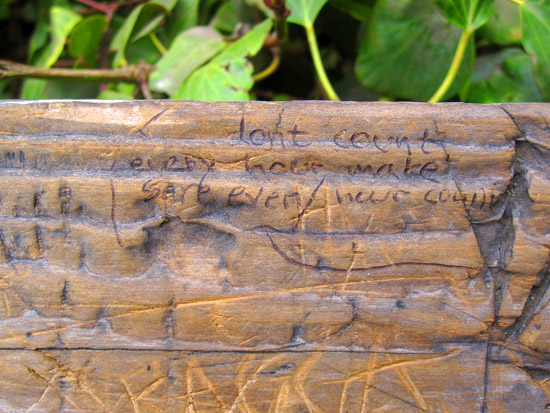 dont count
every hour make
sure every hour counts